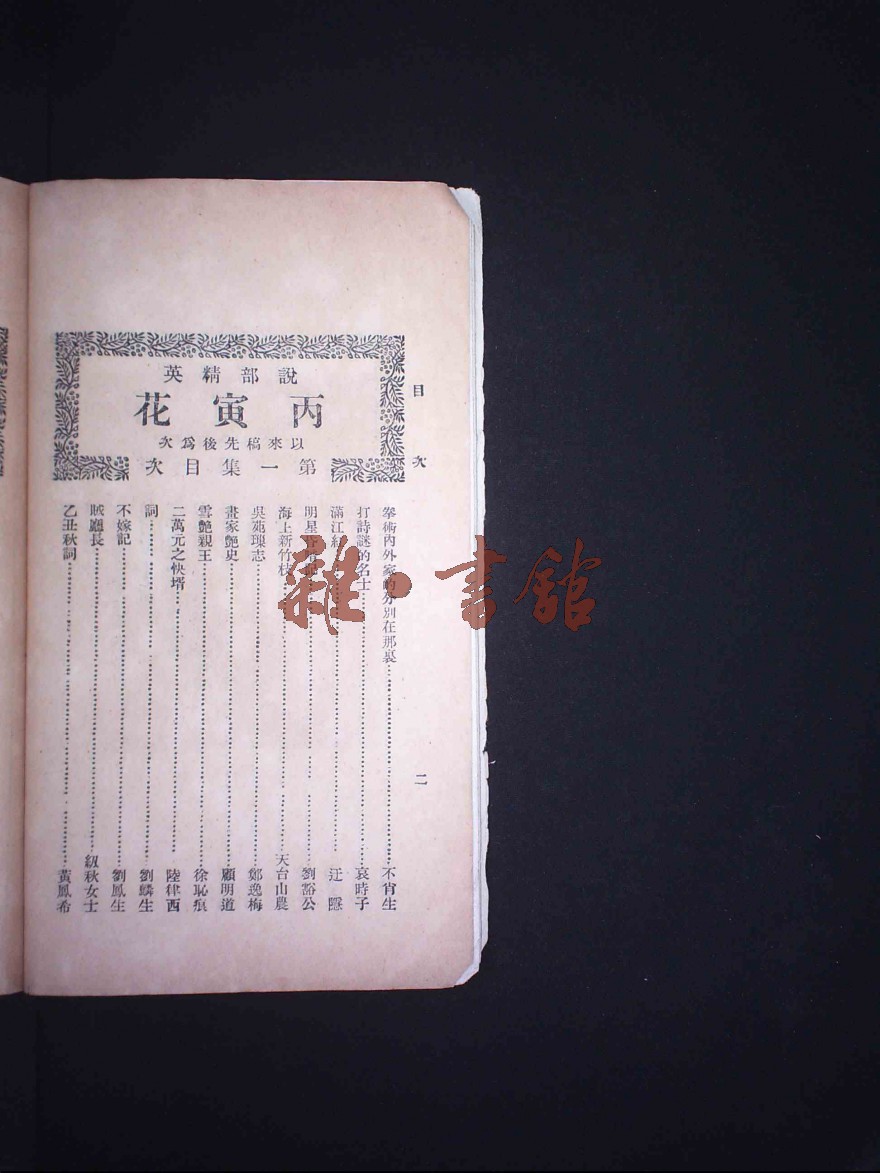 目次
二
說部精英
丙寅花
以來稿先後爲次
第一集目次
拳術內外家的分別在那裏 不肖生
打詩謎的名士 哀時子
滿江紅 迂隱
明星 劉豁公
海上新竹枝 天台山農
吳苑瑣志 鄭逸梅
畫家艷史 顧明道
雪艷親王 徐恥痕
二萬元之快壻 陸律西
詞 劉麟生
不嫁記 劉鳳生
賊廳長 紉秋女士
乙丑秋詞 黃鳳希
雜·書館